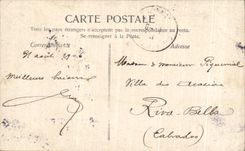 CARTE POSTALE
Tous les pays étrangers n'acceptent pas la correspondance au recto.
Se renseigner à la Poste.
Correspondance
Adresse
31 août 1906
Meilleurs baisers
Madame & Monsieur
Villa des Acacias
Riva-Bella
(Calvados)